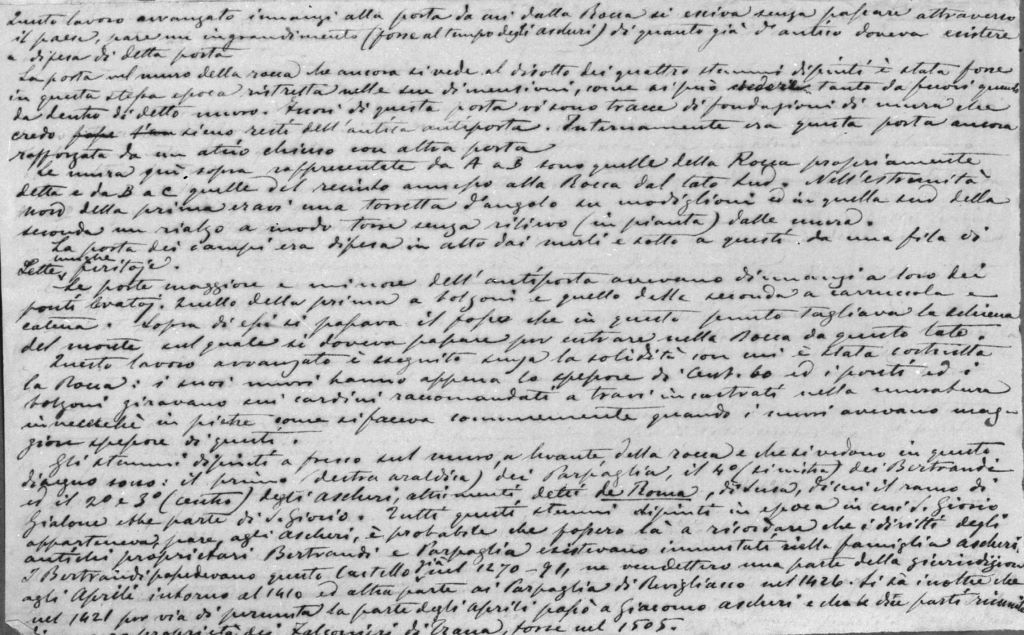 Questo lavoro avvanzato innanzi alla porta da cui dalla Rocca si esciva senza passare attraverso
il paese, pare un ingrandimento (forse al tempo degli ascheri) di quanto già d'antico doveva esistere
a difesa di detta porta
La porta nel muro della rocca che ancora si vede al disotto dei quattro stemmi dipinti è stata forse
in questa stessa epoca ristretta nelle sue dimensioni, come si può vedere tanto da fuori quanto
da dentro di detto muro. Fuori di questa porta vi sono tracce di fondazioni di mura che
credo siano resti dell'antica antiporta. Internamente era questa porta ancora
rafforzata da un atrio chiuso con altra porta
Le mura quì sopra rappresentate da A a B sono quelle della Rocca propriamente
dette e da B a C quelle del recinto annesso alla Rocca dal lato sud. Nell'estremità
nord della prima eravi una torretta d'angolo su modiglioni ed in quella sud della
seconda un rialzo a modo torre senza rilievo (in pianta) dalle mura.
La porta dei campi era difesa in alto dai merli e sotto a questi da una fila di
lunghe
feritoje.
Le porte maggiore e minore dell'antiporta avevano dinnanzi a loro dei
ponti levatoj, quello della prima a bolzoni e quello della seconda a carrucola e
catena. Sopra di essi si passava il fosso che in questo punto tagliava la schiena
del monte sul quale si doveva passare per entrare nella Rocca da questo lato.
Questo lavoro avvanzato è eseguito senza la solidità con cui è stata costrutta
la Rocca: i suoi muri hanno appena lo spessore di Cent. 60 ed i ponti ed i
bolzoni giravano sui cardini raccomandati a travi incastrati nella muratura
invecechè in pietre come si faceva comunemente quando i muri avevano mag-
gior spessore di questi.
Gli stemmi dipinti a fresco sul muro, a levante della rocca e che si vedono in questo
disegno sono: il primo (destra araldica) dei Parpaglia, il 4º (sinistra) dei Bertrandi
ed il 2º e 3º (centro) degli ascheri, altrimenti detti de Roma, di Susa, di cui il ramo di
Gialone ebbe parte di S. Giorio. Tutti questi stemmi dipinti in epoca in cui S. Giorio
apparteneva, pare, agli ascheri, è probabile che fossero là a ricordare che i diritti degli
antichi proprietari Bertrandi e Parpaglia esistevano immutati nella famiglia ascheri.
I Bertrandi possedevano questo Castello già nel 1270-91, ne vendettero una parte della giurisdizione
agli Aprili intorno al 1410 ed altra parte ai Parpaglia di Revigliasco nel 1426. Si sa inoltre che
nel 1421 per via di permuta la parte degli aprili passò a Giacomo ascheri e che le due parti riunite
proprietà dei Falconieri di Trana, forse nel 1505.